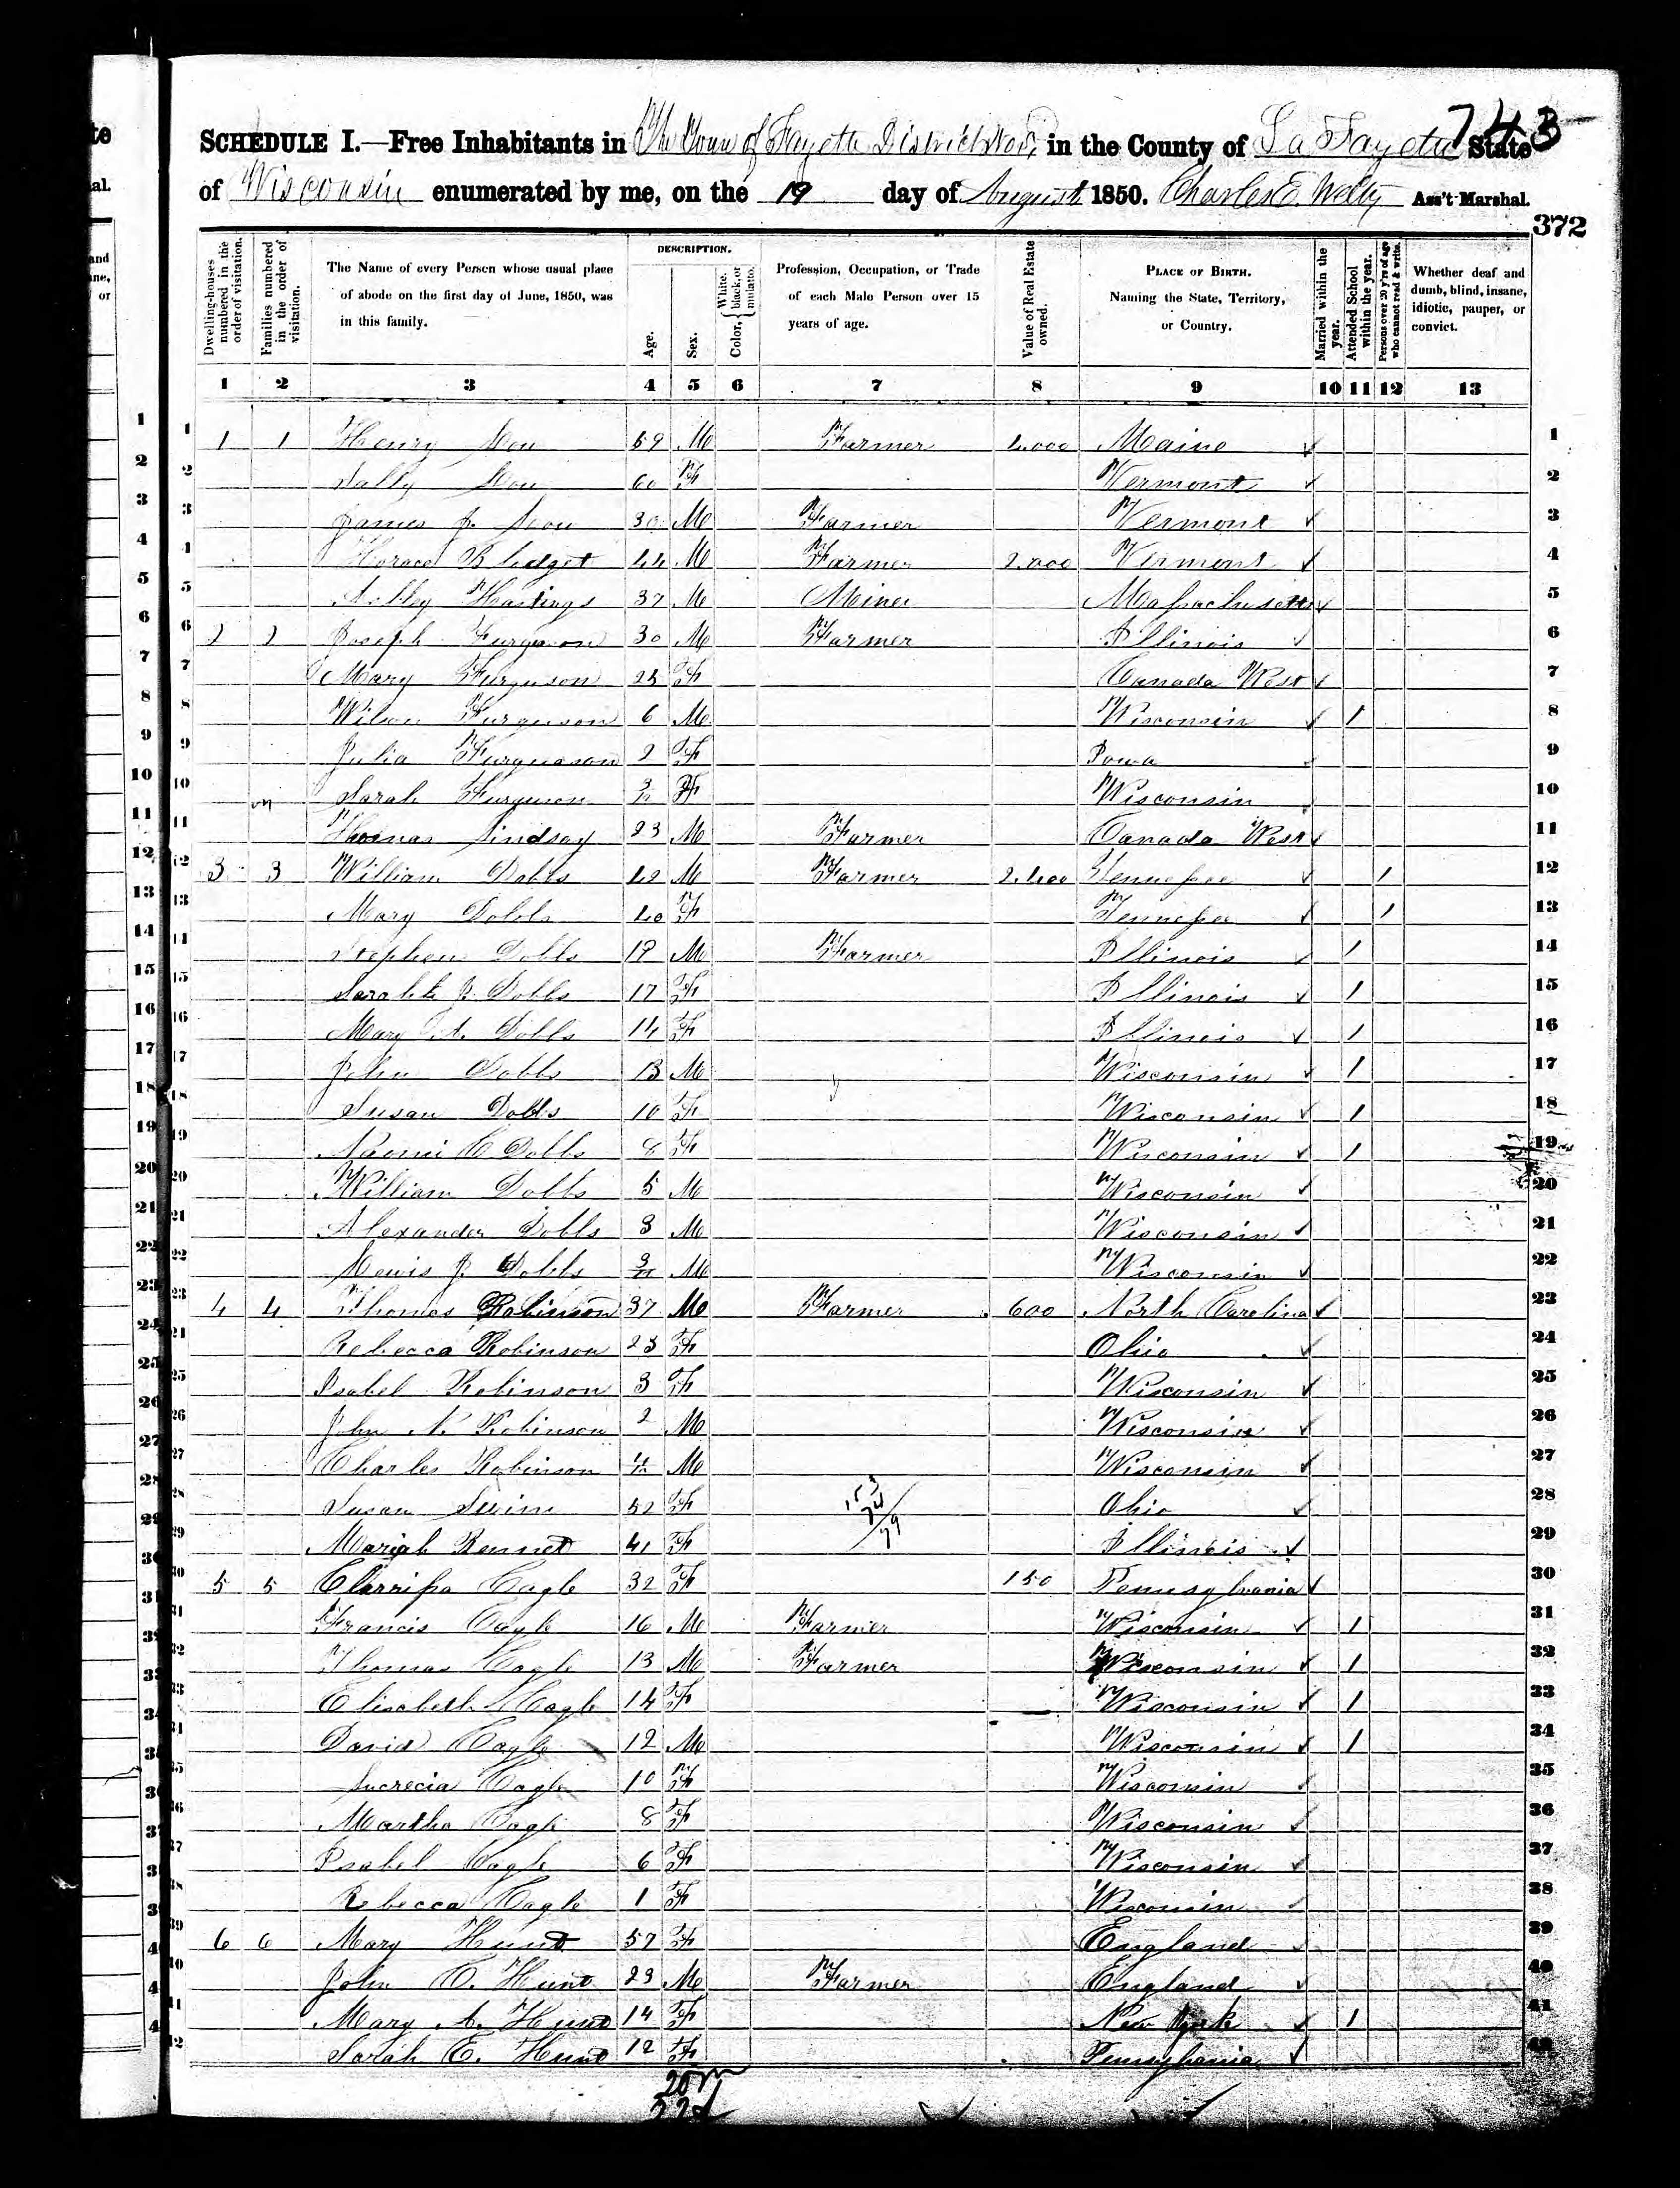 743
SCHEDULE I.—Free Inhabitants in The Town of Fayette District No. in the County of La Fayette State
of Wisconsin enumerated by me, on the 19 day of August 1850. Charles E. Ass't Marshal.
372
Dwelling-houses numbered in the order of visitation.
Families numbered in the order of visitation.
The Name of every Person whose usual place of abode on the first day of June, 1850, was in this family.
DESCRIPTION.
Age.
Sex.
Color, White, black, or mulatto.
Profession, Occupation, or Trade of each Male Person over 15 years of age.
Value of Real Estate owned.
PLACE OF BIRTH. Naming the State, Territory, or Country.
Married within the year.
Attended School within the year.
Persons over 20 y'rs of age who cannot read & write.
Whether deaf and dumb, blind, insane, idiotic, pauper, or convict.
1 2 3 4 5 6 7 8 9 10 11 12 13
1 1 1 Henry 59 M Farmer Maine 1
2 Sally 60 F Vermont 2
3 James J. 30 M Farmer Vermont 3
4 Horace Blodget 44 M Farmer 2.000 Vermont 4
5 Hastings 37 M Miner Massachusetts 5
6 2 2 Joseph Furguson 30 M Farmer Illinois 6
7 Mary Furguson 25 F Canada West 7
8 Furguson 6 M Wisconsin 1 8
9 Julia Furguson 2 F Iowa 9
10 Sarah Furguson F Wisconsin 10
11 Thomas Lindsay 23 M Farmer Canada West 11
12 3 3 William Dobbs 42 M Farmer 2.400 Tennessee 1 12
13 Mary Dobbs 40 F Tennessee 1 13
14 Stephen Dobbs M Farmer Illinois 1 14
15 Sarah J. Dobbs 17 F Illinois 1 15
16 Mary A. Dobbs 14 F Illinois 1 16
17 John Dobbs 13 M Wisconsin 1 17
18 Susan Dobbs 10 F Wisconsin 1 18
19 Naomi C Dobbs 8 F Wisconsin 1 19
20 William Dobbs 5 M Wisconsin 20
21 Alexander Dobbs 3 M Wisconsin 21
22 Lewis J. Dobbs M Wisconsin 22
23 4 4 Thomas Robinson 37 M Farmer 600 North Carolina 23
24 Rebecca Robinson 23 F Ohio 24
25 Isabel Robinson 3 F Wisconsin 25
26 John N. Robinson 2 M Wisconsin 26
27 Charles Robinson M Wisconsin 27
28 Susan 52 F Ohio 28
29 Mariah Bennet 41 F Illinois 29
30 5 5 Clarrissa Cagle 32 F 150 Pennsylvania 30
31 Francis Cagle 16 M Farmer Wisconsin 1 31
32 Thomas Cagle 13 M Farmer Wisconsin 1 32
33 Elisabeth Cagle 14 F Wisconsin 1 33
34 David Cagle 12 M Wisconsin 1 34
35 Lucrecia Cagle 10 F Wisconsin 35
36 Martha Cagle 8 F Wisconsin 36
37 Isabel Cagle 6 F Wisconsin 37
38 Rebecca Cagle 1 F Wisconsin 38
39 6 6 Mary Hunt 57 F England 39
40 John C. Hunt 23 M Farmer England 40
41 Mary A. Hunt 14 F New York 1 41
42 Sarah E. Hunt 12 F Pennsylvania 42
20 m
22 f